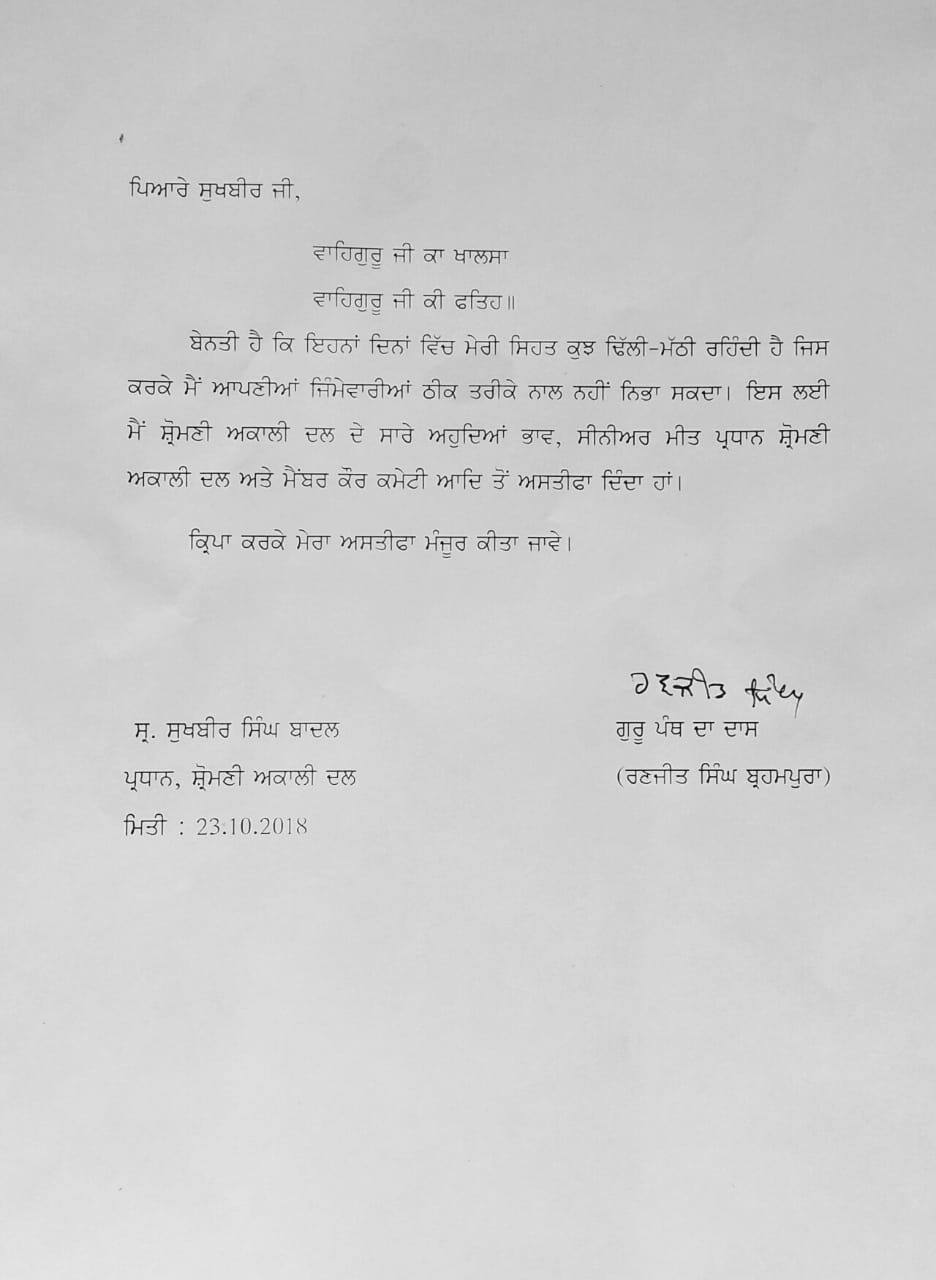 ਪਿਆਰੇ ਸੁਖਬੀਰ ਜੀ,
ਵਾਹਿਗੁਰੂ ਜੀ ਕਾ ਖਾਲਸਾ
ਵਾਹਿਗੁਰੂ ਜੀ ਕੀ ਫਤਿਹ॥
ਬੇਨਤੀ ਹੈ ਕਿ ਇਹਨਾਂ ਦਿਨਾਂ ਵਿੱਚ ਮੇਰੀ ਸਿਹਤ ਕੁਝ ਢਿੱਲੀ-ਮੱਠੀ ਰਹਿੰਦੀ ਹੈ ਜਿਸ
ਕਰਕੇ ਮੈਂ ਆਪਣੀਆਂ ਜਿੰਮੇਵਾਰੀਆਂ ਠੀਕ ਤਰੀਕੇ ਨਾਲ ਨਹੀਂ ਨਿਭਾ ਸਕਦਾ। ਇਸ ਲਈ
ਮੈਂ ਸ਼੍ਰੋਮਣੀ ਅਕਾਲੀ ਦਲ ਦੇ ਸਾਰੇ ਅਹੁਦਿਆਂ ਭਾਵ, ਸੀਨੀਅਰ ਮੀਤ ਪ੍ਰਧਾਨ ਸ਼੍ਰੋਮਣੀ
ਅਕਾਲੀ ਦਲ ਅਤੇ ਮੈਂਬਰ ਕੌਰ ਕਮੇਟੀ ਆਦਿ ਤੋਂ ਅਸਤੀਫਾ ਦਿੰਦਾ ਹਾਂ।
ਕ੍ਰਿਪਾ ਕਰਕੇ ਮੇਰਾ ਅਸਤੀਫਾ ਮੰਜੂਰ ਕੀਤਾ ਜਾਵੇ।
ਰਣਜੀਤ ਸਿੰਘ
ਸ੍ਰ. ਸੁਖਬੀਰ ਸਿੰਘ ਬਾਦਲ
ਗੁਰੂ ਪੰਥ ਦਾ ਦਾਸ
ਪ੍ਰਧਾਨ, ਸ਼੍ਰੋਮਣੀ ਅਕਾਲੀ ਦਲ
(ਰਣਜੀਤ ਸਿੰਘ ਬ੍ਰਹਮਪੁਰਾ)
ਮਿਤੀ : 23.10.2018